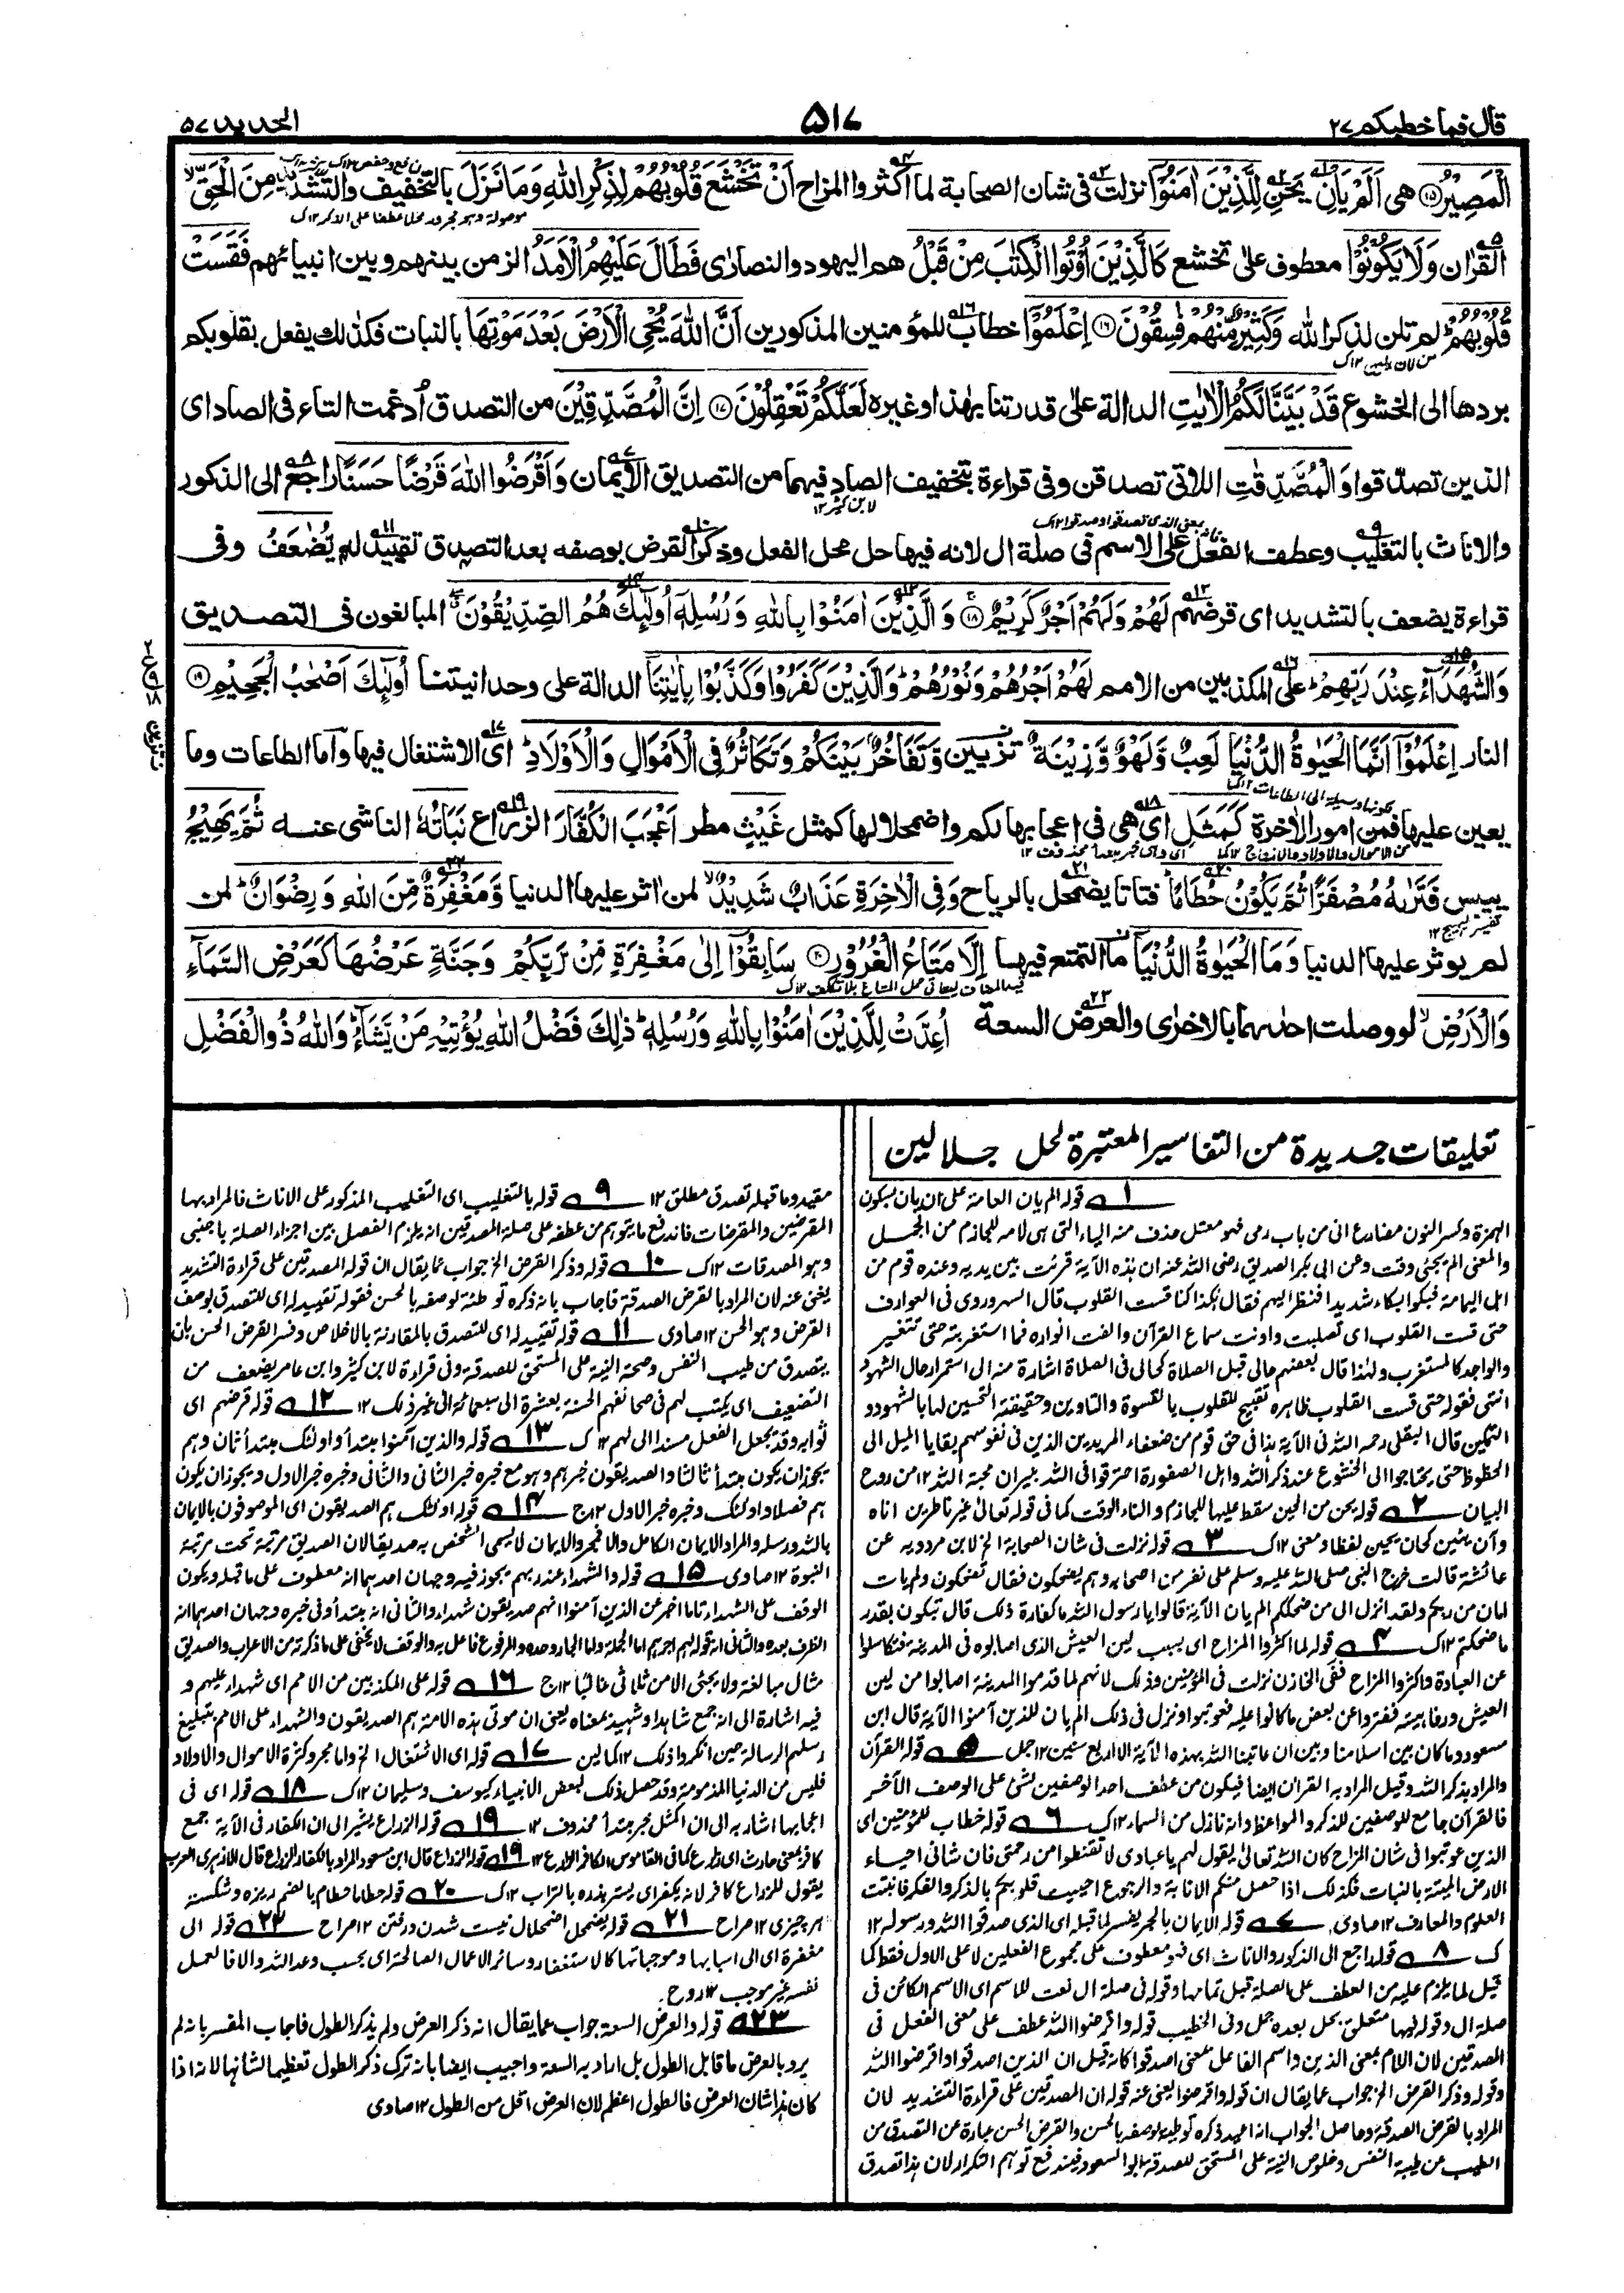 قال فما خطبكم ٢٧
٥١٧
الحديد ٥٧
الْمَصِيْرُ ⑮ هى اَلَمْ يَاْنِ يحن لِلَّذِيْنَ اٰمَنُوْٓا نزلت فى شان الصحابة لما اكثروا المزاح اَنْ تَخْشَعَ قُلُوْبُهُمْ لِذِكْرِ اللّٰهِ وَمَا نَزَلَ بالتخفيف والتشديد مِنَ الْحَقِّ
القراٰن وَلَا يَكُوْنُوْا معطوف على تخشع كَالَّذِيْنَ اُوْتُوا الْكِتٰبَ مِنْ قَبْلُ هم اليهود والنصارى فَطَالَ عَلَيْهِمُ الْاَمَدُ الزمن بينهم وبين انبيائهم فَقَسَتْ
قُلُوْبُهُمْ لم تلن لذكر الله وَكَثِيْرٌ مِّنْهُمْ فٰسِقُوْنَ ⑯ اِعْلَمُوْٓا خطاب للمؤمنين المذكورين اَنَّ اللّٰهَ يُحْيِ الْاَرْضَ بَعْدَ مَوْتِهَا بالنبات فكذلك يفعل بقلوبكم
بردها الى الخشوع قَدْ بَيَّنَّا لَكُمُ الْاٰيٰتِ الدالة على قدرتنا بهذا وغيره لَعَلَّكُمْ تَعْقِلُوْنَ ⑰ اِنَّ الْمُصَّدِّقِيْنَ من التصدق اُدغمت التاء فى الصاد اى
الذين تصدّقوا وَالْمُصَّدِّقٰتِ اللاتى تصدقن وفى قراءة بتخفيف الصاد فيهما من التصديق الايمان وَاَقْرَضُوا اللّٰهَ قَرْضًا حَسَنًا راجع الى الذكور
والاناث بالتغليب وعطف الفعل على الاسم فى صلة ال لانه فيها حل محل الفعل وذكر القرض بوصفه بعد التصدق تقييد له يُّضٰعَفُ وفى
قراءة يضعف بالتشديد اى قرضهم لَهُمْ وَلَهُمْ اَجْرٌ كَرِيْمٌ ⑱ وَالَّذِيْنَ اٰمَنُوْا بِاللّٰهِ وَرُسُلِهٖٓ اُولٰٓئِكَ هُمُ الصِّدِّيْقُوْنَ المبالغون فى التصديق
وَالشُّهَدَآءُ عِنْدَ رَبِّهِمْ على المكذبين من الامم لَهُمْ اَجْرُهُمْ وَنُوْرُهُمْ وَالَّذِيْنَ كَفَرُوْا وَكَذَّبُوْا بِاٰيٰتِنَآ الدالة على وحدانيتنا اُولٰٓئِكَ اَصْحٰبُ الْجَحِيْمِ ⑲
النار اِعْلَمُوْٓا اَنَّمَا الْحَيٰوةُ الدُّنْيَا لَعِبٌ وَّلَهْوٌ وَّزِيْنَةٌ تزيين وَّتَفَاخُرٌۢ بَيْنَكُمْ وَتَكَاثُرٌ فِى الْاَمْوَالِ وَالْاَوْلَادِ اى الاشتغال فيها واما الطاعات وما
يعين عليها فمن امور الاٰخرة كَمَثَلِ اى هى فى اعجابها لكم واضمحلالها كمثل غَيْثٍ مطر اَعْجَبَ الْكُفَّارَ الزراع نَبَاتُهٗ الناشى عنه ثُمَّ يَهِيْجُ
ييبس فَتَرٰىهُ مُصْفَرًّا ثُمَّ يَكُوْنُ حُطَامًا فتاتا يضمحل بالرياح وَفِى الْاٰخِرَةِ عَذَابٌ شَدِيْدٌ لمن اٰثر عليها الدنيا وَّمَغْفِرَةٌ مِّنَ اللّٰهِ وَرِضْوَانٌ لمن
لم يوثر عليها الدنيا وَمَا الْحَيٰوةُ الدُّنْيَآ ما التمتع فيها اِلَّا مَتَاعُ الْغُرُوْرِ ⑳ سَابِقُوْٓا اِلٰى مَغْفِرَةٍ مِّنْ رَّبِّكُمْ وَجَنَّةٍ عَرْضُهَا كَعَرْضِ السَّمَآءِ
وَالْاَرْضِ لو وصلت احدٰهما بالاخرٰى والعرض السعة اُعِدَّتْ لِلَّذِيْنَ اٰمَنُوْا بِاللّٰهِ وَرُسُلِهٖ ذٰلِكَ فَضْلُ اللّٰهِ يُؤْتِيْهِ مَنْ يَّشَآءُ وَاللّٰهُ ذُو الْفَضْلِ
تعليقات جديدة من التفاسير المعتبرة لحل جلالين
١ قوله الم يان العامة على ان يان بسكون
الهمزة وكسر النون مضارع انى من باب رمى فهو معتل حذف منه الياء التى هى لامه للجازم من الجمل
والمعنى الم يجئ وقت وعن ابى بكر الصديق رضى الله عنه ان هذه الآية قرئت بين يديه وعنده قوم من
اهل اليمامة فبكوا بكاء شديدا فنظر اليهم فقال هكذا كنا قست القلوب قال السهروردى فى العوارف
حتى قست القلوب اى تصلبت وادمنت سماع القرآن والفت انواره فما استغربته حتى تتغير
والواجد كالمستغرب ولهذا قال بعضهم حالى قبل الصلاة كحالى فى الصلاة اشارة منه الى استمرار حال الشهود
انتى فقوله حتى قست القلوب ظاهره تقبيح للقلوب بالقسوة والتلوين وحقيقته التحسين لها بالشهود و
التمكين قال البقلى رحمه الله فى الآية هذا فى حق قوم من ضعفاء المريدين الذين فى نفوسهم بقايا الميل الى
الحظوظ حتى يحتاجوا الى الخشوع عند ذكر الله واهل الصفوة احترقوا فى الله بنيران محبة الله ١٢ من روح
البيان ٢ قوله يحن من الحين سقط عليها للجازم والناء الوقت كما فى قوله تعالى غير ناظرين اناه
وآن يئين كحان يحين لفظا ومعنى ١٢ك ٣ قوله نزلت فى شان الصحابة الخ لابن مردويه عن
عائشة قالت خرج النبى صلى الله عليه وسلم على نفر من اصحابه وهم يضحكون فقال تضحكون ولم يات
امان من ربكم ولقد انزل الى من ضحككم الم يان الآية قالوا يا رسول الله ما كفارة ذلك قال تبكون بقدر
ما ضحكتم ١٢ك ٤ قوله لما اكثروا المزاح اى بسبب لين العيش الذى اصابوه فى المدينة فتكاسلوا
عن العبادة واكثروا المزاح ففى الخازن نزلت فى المؤمنين وذلك لانهم لما قدموا المدينة اصابوا من لين
العيش ورفاهيته ففتروا عن بعض ما كانوا عليه فعوتبوا ونزل فى ذلك الم يان للذين آمنوا الآية قال ابن
مسعود وما كان بين اسلامنا وبين ان عاتبنا الله بهذه الآية الا اربع سنين ١٢ جمل ٥ قوله القرآن
والمراد بذكر الله وقيل المراد به القران ايضا فيكون من عطف احد الوصفين لشئ على الوصف الآخر
فالقرآن جامع للوصفين للذكر والمواعظ وانه نازل من السماء ١٢ك ٦ قوله خطاب للمؤمنين اى
الذين عوتبوا فى شان المزاح كان الله تعالى يقول لهم يا عبادى لا تقنطوا من رحمتى فان شانى احياء
الارض الميتة بالنبات فكذلك اذا حصل منكم الانابة والرجوع احييت قلوبكم بالذكر والفكر فانبتت
العلوم والمعارف ١٢ صاوى ٧ قوله الايمان بالجر يفسر لما قبله اى الذى صدقوا الله ورسوله ١٢
ك ٨ قوله راجع الى الذكور والاناث اى فهو معطوف على مجموع الفعلين لا على الاول فقط كما
قيل لما يلزم عليه من العطف على الصلة قبل تمامها وقوله فى صلة ال نعت للاسم اى الاسم الكائن فى
صلة ال وقوله فيها متعلق بحل بعده جمل وفى الخطيب قوله واقرضوا الله عطف على معنى الفعل فى
المصدقين لان اللام بمعنى الذين واسم الفاعل بمعنى اصدقوا كانه قيل ان الذين اصدقوا واقرضوا الله
وقوله وذكر القرض الخ جواب عما يقال ان قوله واقرضوا يغنى عنه قوله ان المصدقين على قراءة التشديد لان
المراد بالقرض الصدقة وحاصل الجواب انه اعيد ذكره توطية لوصفه بالحسن والقرض الحسن عبارة عن التصدق من
الطيب عن طيبة النفس وخلوص النية على المستحق للصدقة ابو السعود فيندفع توهم التكرار لان هذا تصدق
مقيد وما قبله تصدق مطلق ١٢ ٩ قوله بالتغليب اى التغليب المذكور على الاناث فالمراد بها
المقرضين والمقرضات فاندفع ما يتوهم من عطفه على صلة المصدقين انه يلزم الفصل بين اجزاء الصلة باجنبى
وهو المصدقات ١٢ك ١٠ قوله وذكر القرض الخ جواب عما يقال ان قوله المصدقين على قراءة التشديد
يغنى عنه لان المراد بالقرض الصدقة فاجاب بانه ذكره توطئة لوصفه بالحسن فقوله تقييد له اى للتصدق بوصف
القرض وهو الحسن ١٢ صاوى ١١ قوله تقييد له اى للتصدق بالمقارنة بالاخلاص وفسر القرض الحسن بان
يتصدق من طيب النفس وصحة النية على المستحق للصدقة وفى قراءة لابن كثير وابن عامر يضعف من
التضعيف اى يكتب لهم فى صحائفهم الحسنة بعشرة الى سبعمائة الى غير ذلك ١٢ ١٢ قوله قرضهم اى
ثوابه وقد يجعل الفعل مسندا الى لهم ١٢ك ١٣ قوله والذين آمنوا مبتدأ واولئك مبتدأ ثان وهم
يجوز ان يكون مبتدأ ثالثا والصديقون خبر هم وهو مع خبره خبر الثانى والثانى وخبره خبر الاول ويجوز ان يكون
هم فصلا واولئك وخبره خبر الاول ١٢ج ١٤ قوله اولئك هم الصديقون اى الموصوفون بالايمان
بالله ورسله والمراد الايمان الكامل والا فمجرد الايمان لا يسمى الشخص به صديقا لان الصديق مرتبة تحت مرتبة
النبوة ١٢ صاوى ١٥ قوله والشهداء عند ربهم يجوز فيه وجهان احدهما انه معطوف على ما قبله ويكون
الوقف على الشهداء تاما اخبر عن الذين آمنوا انهم صديقون شهداء والثانى انه مبتدأ وفى خبره وجهان احدهما انه
الظرف بعده والثانى انه قوله لهم اجرهم اما الجملة واما الجار وحده والمرفوع فاعل به والوقف لا يخفى على ما ذكرته من الاعراب والصديق
مثال مبالغة ولا يجئ الا من ثلاثى غالبا ١٢ج ١٦ قوله على المكذبين من الامم اى شهداء عليهم و
فيه اشارة الى انه جمع شاهد او شهيد معناه يعنى ان موتى هذه الامة هم الصديقون والشهداء على الامم بتبليغ
رسلهم الرسالة حين انكروا ذلك ١٢ كمالين ١٧ قوله اى الاشتغال الخ واما مجرد كثرة الاموال والاولاد
فليس من الدنيا المذمومة وقد حصل ذلك لبعض الانبياء كيوسف وسليمان ١٢ك ١٨ قوله اى فى
اعجابها اشار به الى ان كمثل خبر مبتدأ محذوف ١٢ ١٩ قوله الزراع يشير الى ان الكفار فى الآية جمع
كافر بمعنى حارث اى زارع كما فى القاموس الكافر الزارع ١٢ ١٩ قوله الزراع قال ابن مسعود المراد بالكفار الزراع قال الازهرى العرب
يقول للزراع كافر لانه يكفر اى يستر بذره بالتراب ١٢ك ٢٠ قوله حطاما حطام بالضم ريزه وشكسته
هر چيزى ١٢ صراح ٢١ قوله يضمحل اضمحلال نيست شدن ورفتن ١٢ صراح ٢٢ قوله الى
مغفرة اى الى اسبابها وموجباتها كالاستغفار وسائر الاعمال الصالحة اى بحسب وعد الله والا فالعمل
نفسه غير موجب ١٢ روح.
٢٣ قوله والعرض السعة جواب عما يقال انه ذكر العرض ولم يذكر الطول فاجاب المفسر بانه لم
يرد بالعرض ما قابل الطول بل اراد به السعة واجيب ايضا بانه ترك ذكر الطول تعظيما لشانها لانه اذا
كان هذا شان العرض فالطول اعظم لان العرض اقل من الطول ١٢ صاوى